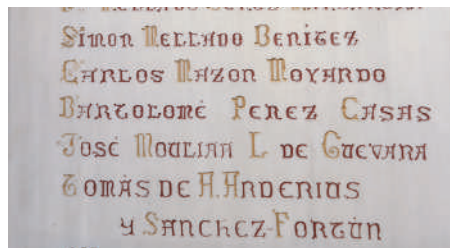 Simon Mellado Benitez
Carlos Mazon Moyardo
Bartolomé Perez Casas
José Moulian L de Guevara
Tomás de A. Arderius
y Sanchez-Fortún